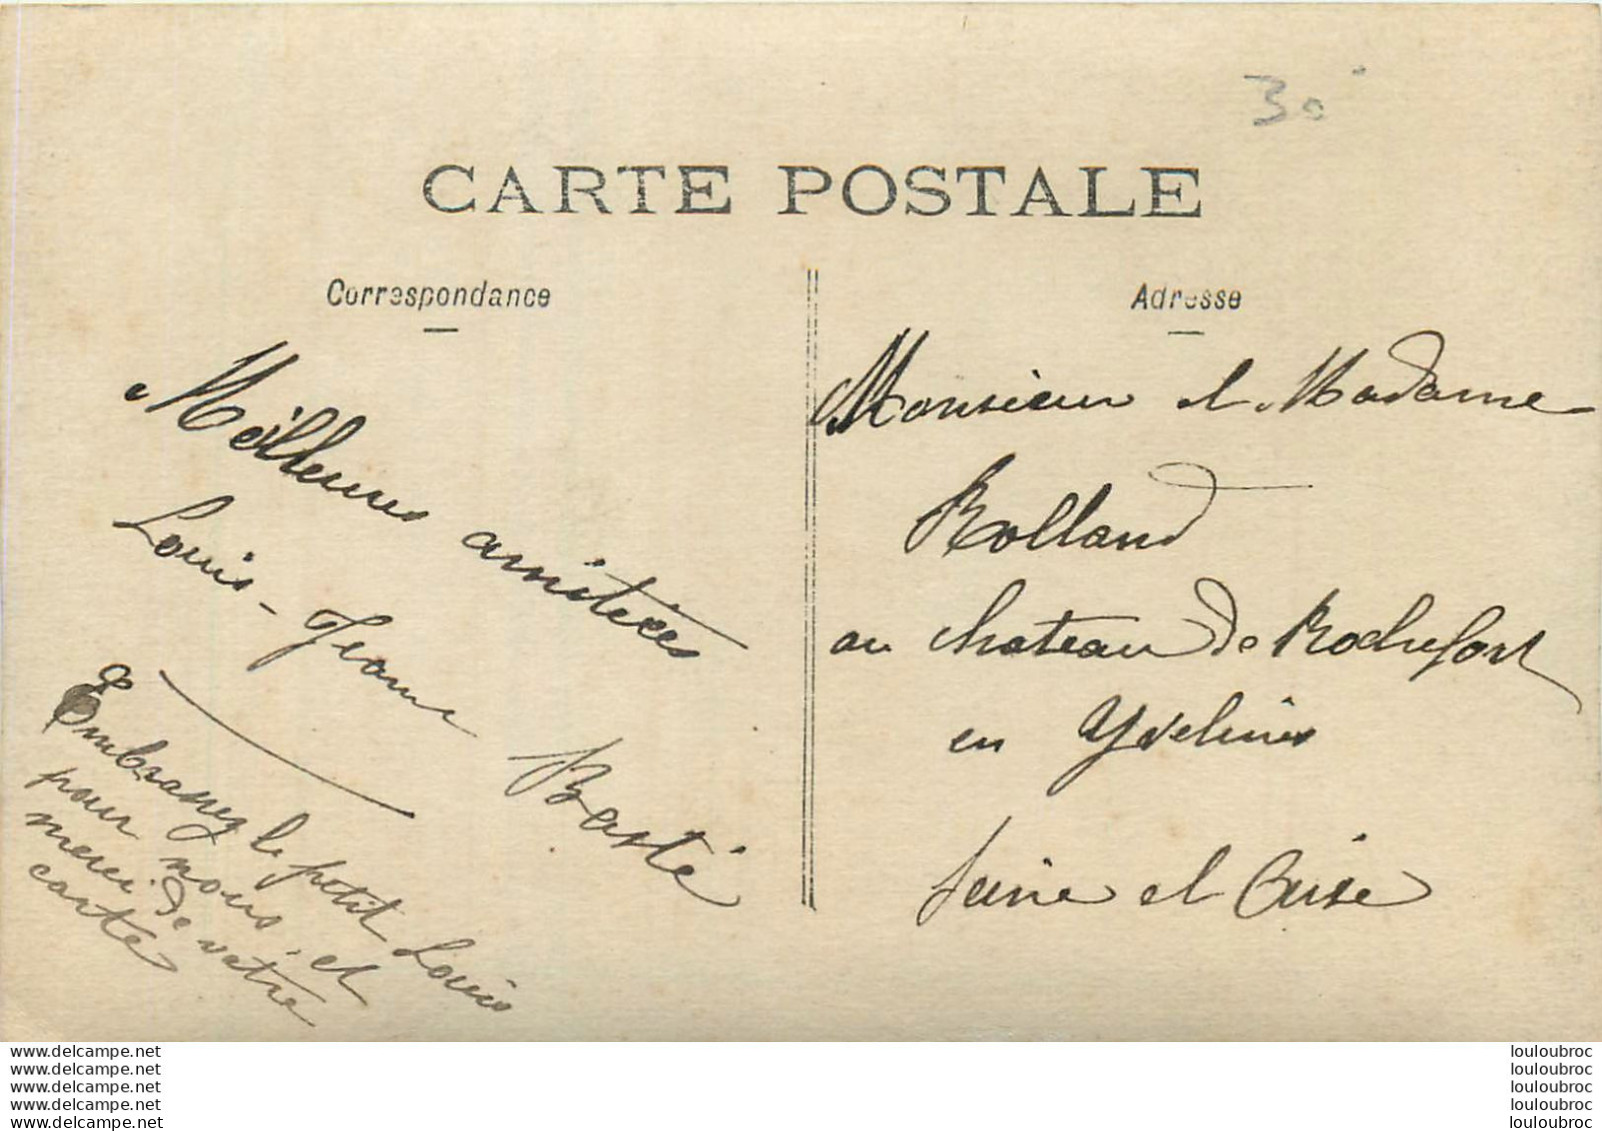 30
CARTE POSTALE
Correspondance
Meilleures amitiées
Louis - Jeanne Basté
Embrassez le petit Louis
pour nous, et
merci de votre
carte
Adresse
Monsieur et Madame
Rolland
au chateau de Rochefort
en Yvelines
Seine et Oise
www.delcampe.net
www.delcampe.net
www.delcampe.net
www.delcampe.net
www.delcampe.net
louloubroc
louloubroc
louloubroc
louloubroc
louloubroc